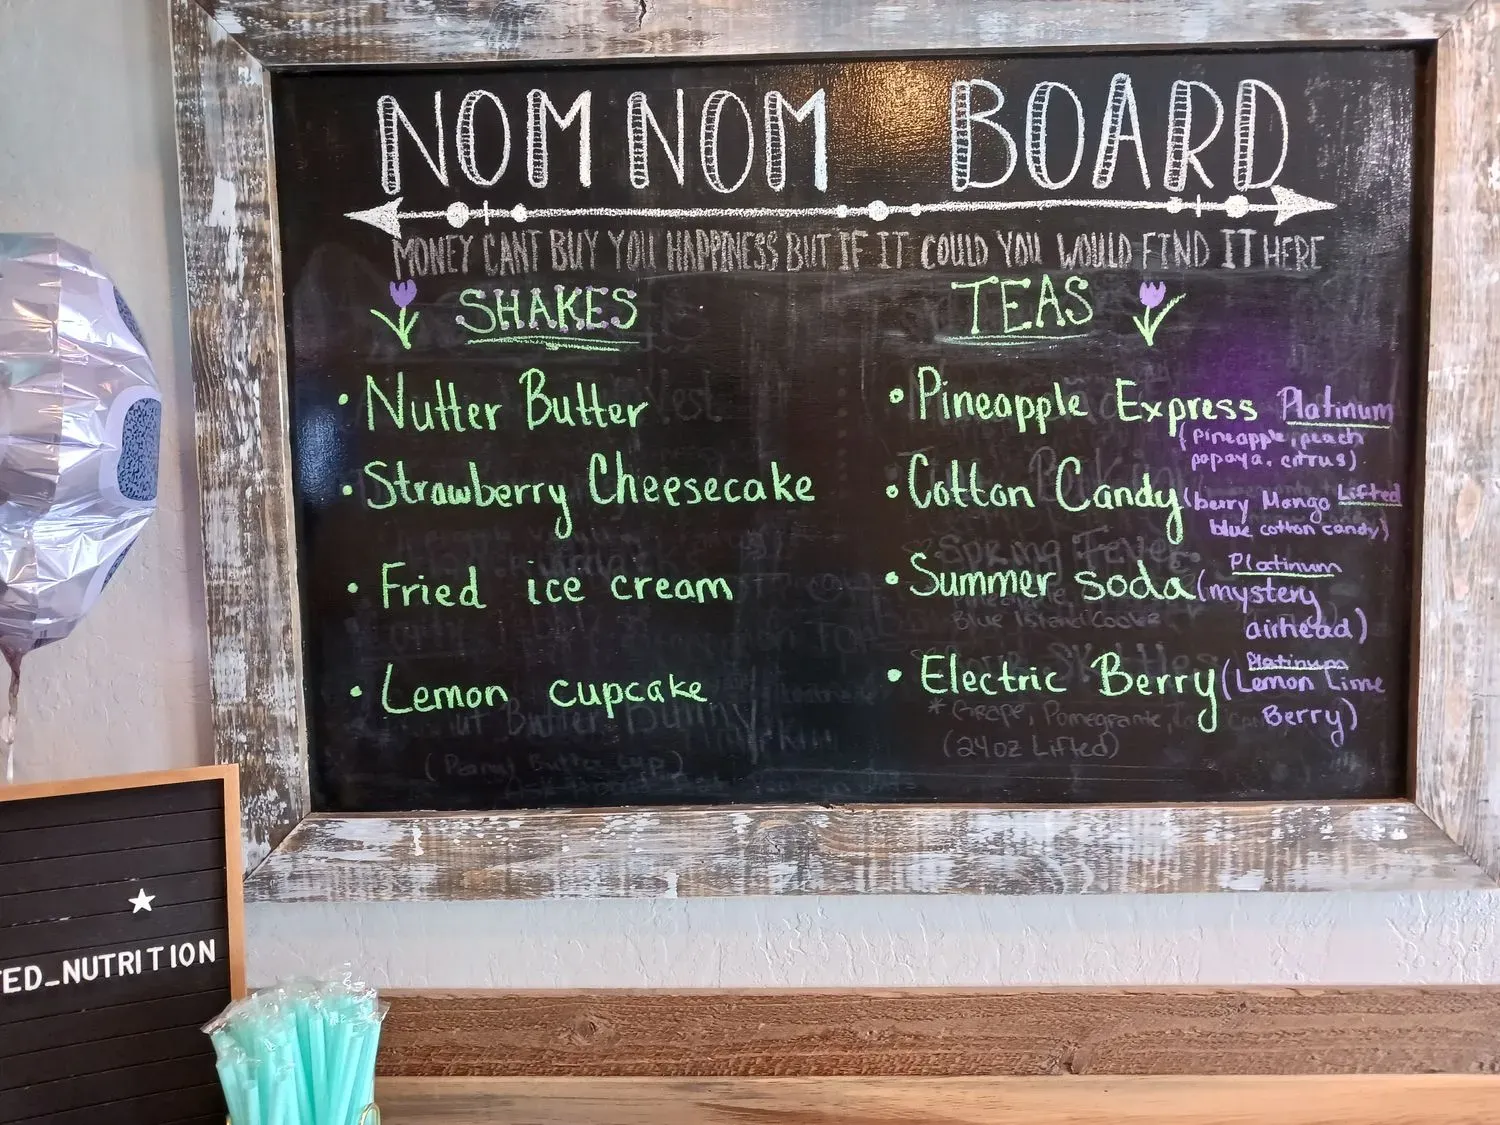 NOM NOM BOARD
MONEY CANT BUY YOU HAPPINESS BUT IF IT COULD YOU WOULD FIND IT HERE
SHAKES
• Nutter Butter
• Strawberry Cheesecake
• Fried ice cream
• Lemon cupcake
(Peanut Butter Cup)
TEAS
• Pineapple Express Platinum
(pineapple, peach
papaya, citrus)
• Cotton Candy (berry Mango Lifted
blue cotton candy)
Spring Fever
Platinum
• Summer soda (mystery
airhead)
Blue Island Cooler
Platinum
• Electric Berry (Lemon Lime
Berry)
* Grape, Pomegranate,
(24oz Lifted)
TED_NUTRITION